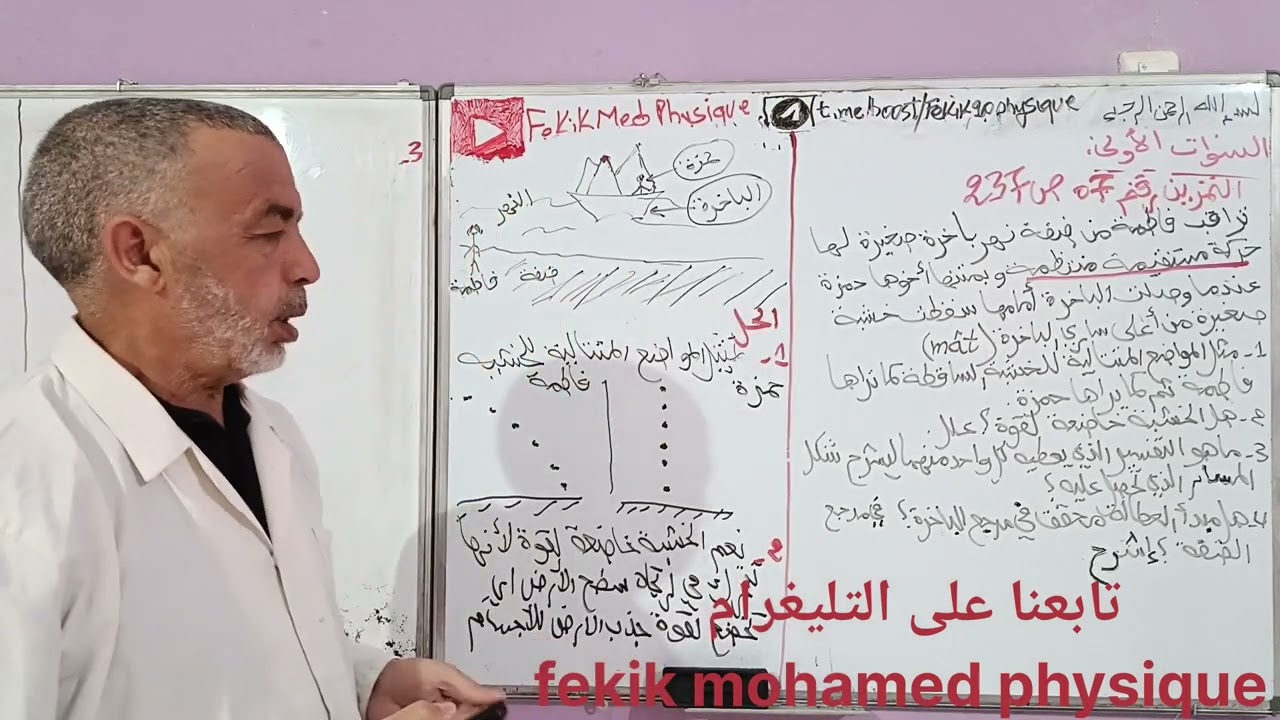 بسم الله الرحمن الرحيم
السنوات الأولى:
التمرين رقم 07 ص 237
تراقب فاطمة من ضفة نهر باخرة صغيرة لها
حركة مستقيمة منتظمة و يمتطيها أخوها حمزة
عندما وصلت الباخرة أمامها سقطت خشبة
صغيرة من أعلى ساري الباخرة (mât)
1- مثل المواضع المتتالية للخشبة الساقطة كما تراها
فاطمة ثم كما يراها حمزة.
2- هل الخشبة خاضعة لقوة؟ علل.
3- ماهو التفسير الذي يعطيه كل واحد منهما ليشرح شكل
المسار الذي تحصل عليه؟
4- هل مبدأ العطالة محقق في مرجع الباخرة؟ في مرجع
الضفة؟ إشرح
FeKiK Med Physique
t.me/boost/fekik90physique
حمزة
الباخرة
النهر
ضفة
فاطمة
الحل
1- تمثيل المواضع المتتالية للخشبة
حمزة
فاطمة
2- نعم الخشبة خاضعة لقوة لأنها
سطح الأرض اي
تخضع لقوة جذب الارض للأجسام
3-
تابعنا على التليغرام
fekik mohamed physique